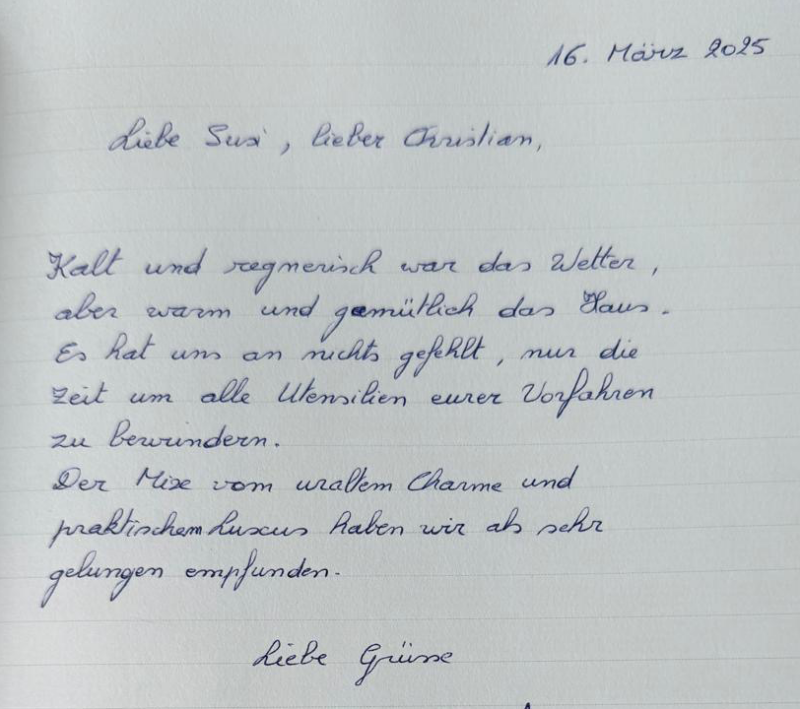 16. März 2025
Liebe Susi, lieber Christian,
Kalt und regnerisch war das Wetter,
aber warm und gemütlich das Haus.
Es hat uns an nichts gefehlt, nur die
Zeit um alle Utensilien eurer Vorfahren
zu bewundern.
Der Mix vom uraltem Charme und
praktischem Luxus haben wir als sehr
gelungen empfunden.
Liebe Grüsse